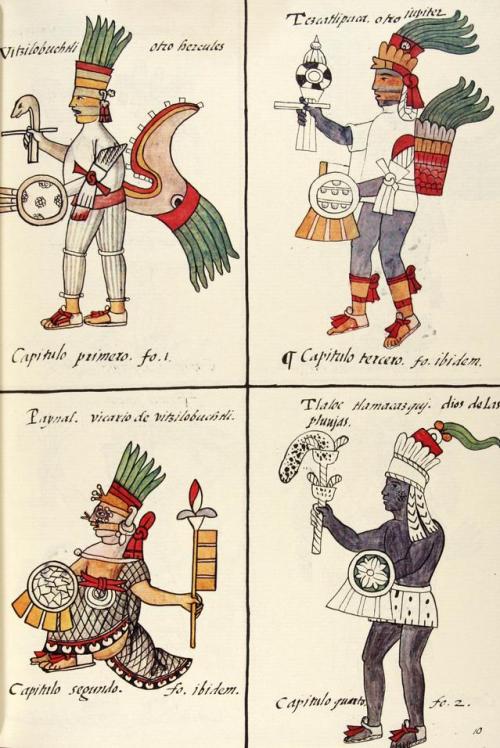 Vitzilobuchtli otro hercules
Capitulo primero. fo. 1.
Tezcatlipuca, otro iupiter
¶ Capitulo tercero. fo. ibidem.
Paynal. vicario de vitzilobuchtli.
Capitulo segundo. fo. ibidem.
Tlaloc tlamacazqui. dios de las
pluuias.
Capitulo quarto. fo. 2.
10